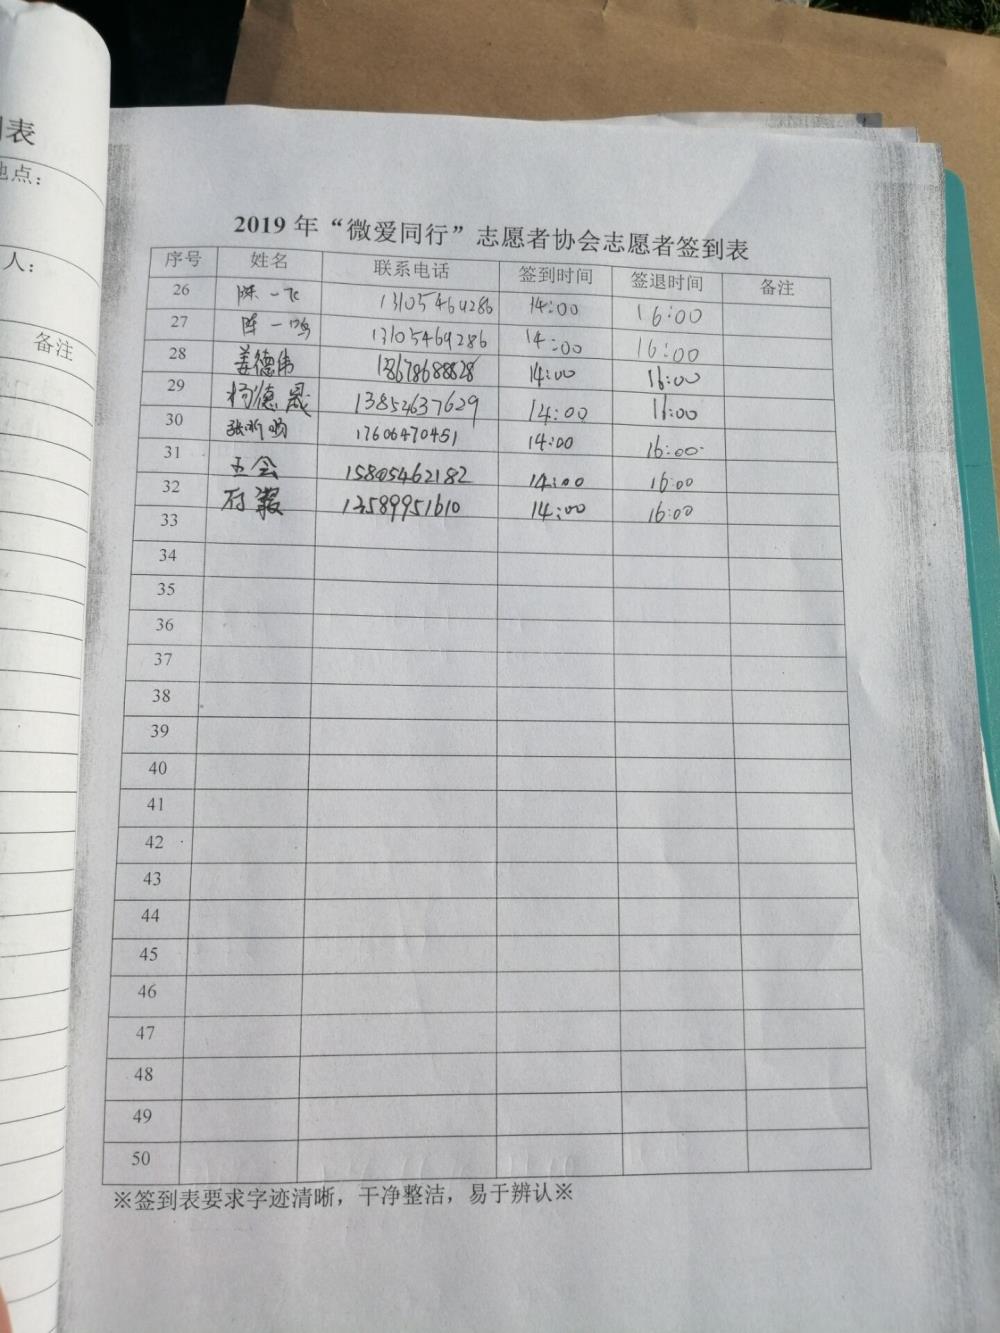 表
地点：
人：
备注
2019 年“微爱同行”志愿者协会志愿者签到表
序号 姓名 联系电话 签到时间 签退时间 备注
26 陈一飞 13105464286 14:00 16:00
27 陈一鸣 13105464286 14:00 16:00
28 姜德伟 14:00 16:00
29 杨德晟 13854637629 14:00 16:00
30 17606470451 14:00 16:00
31 王会 15805462182 14:00 16:00
32 13589951610 14:00 16:00
33
34
35
36
37
38
39
40
41
42
43
44
45
46
47
48
49
50
※签到表要求字迹清晰，干净整洁，易于辨认※